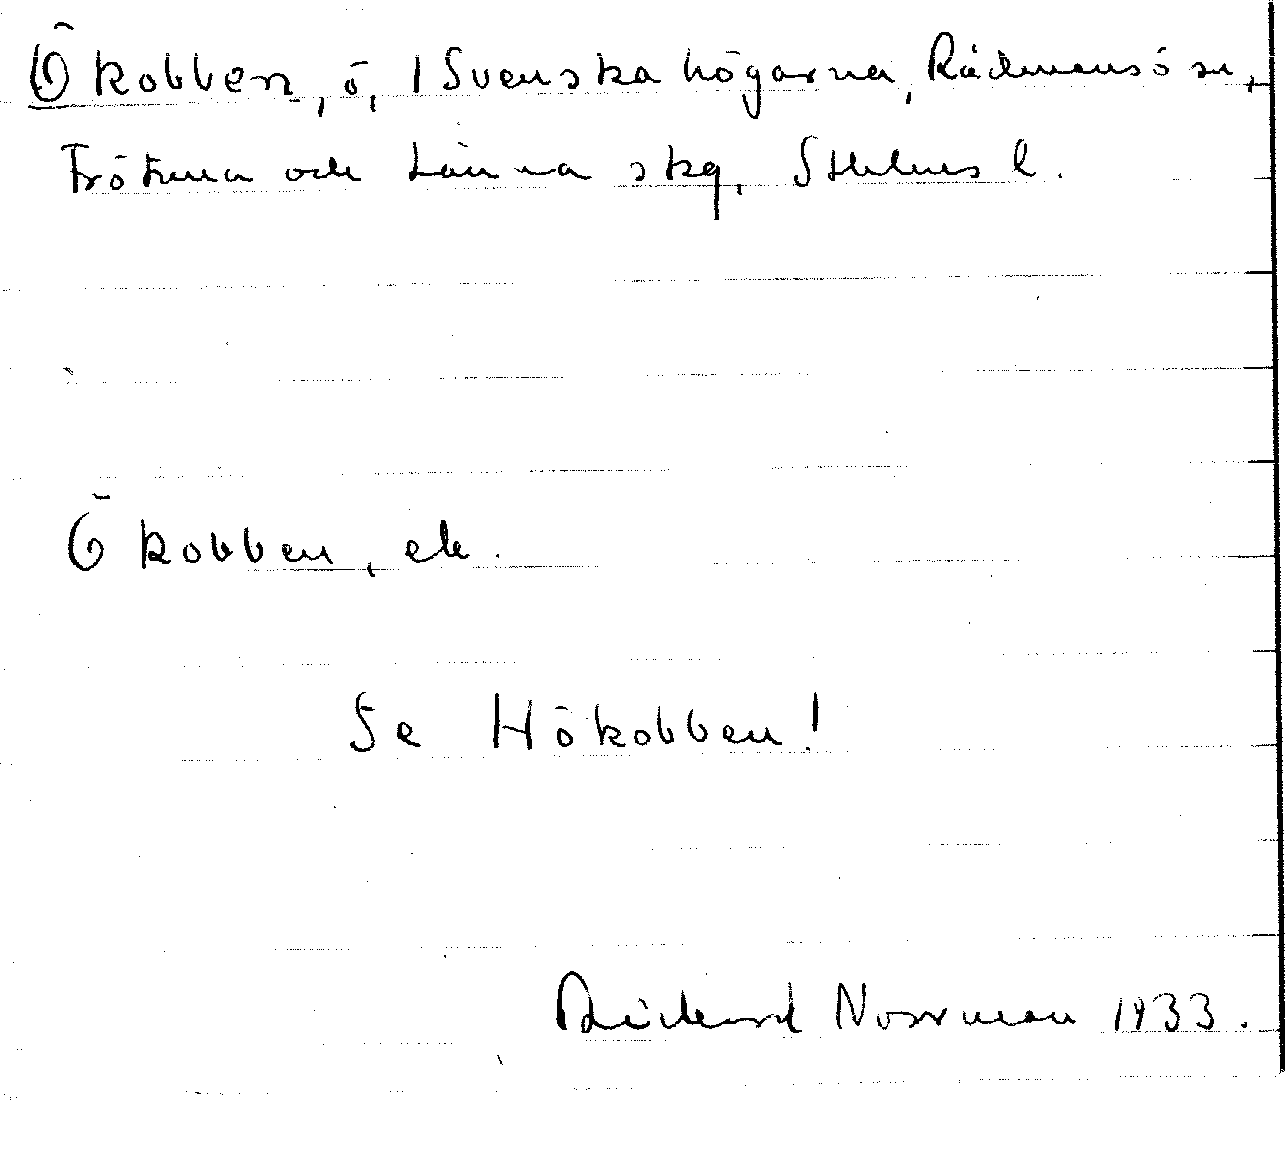 Ökobben, ö, i Svenska högarna, Rådmansö sn,
Frötuna och Länna skg, Sthlms l.
Ökobben, ek.
Se Hökobben!
Rickard Norrman 1933.